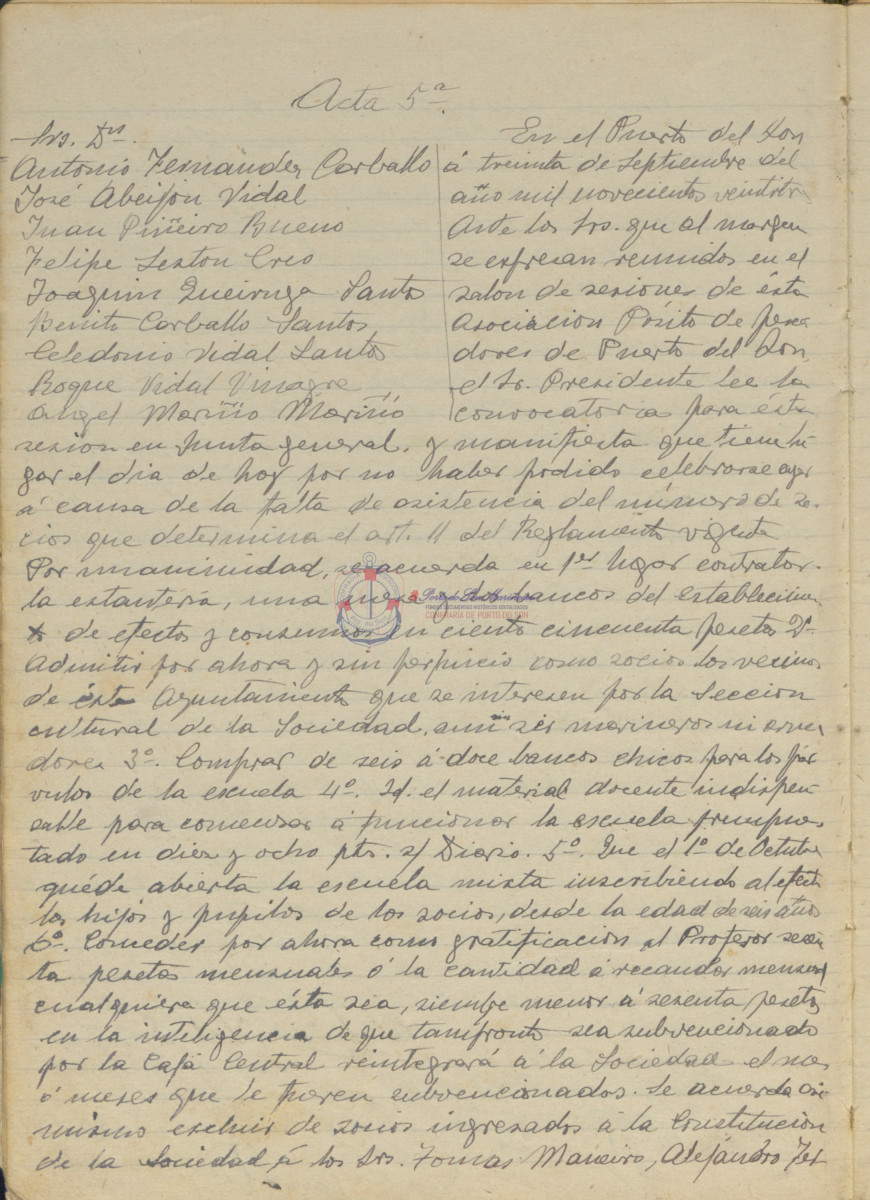 Acta 5ª.
Srs. Dn.
Antonio Fernandez Carballo
José Abeijon Vidal
Juan Piñeiro Bueno
Felipe Sexton Creo
Joaquin Queiruga Santos
Benito Carballo Santos
Celedonio Vidal Santos
Roque Vidal Vinagre
Angel Mariño Mariño
En el Puerto del Son
á treinta de Septiembre del
año mil novecientos veintitr
Ante los Srs. que al margen
se expresan reunidos en el
salon de sesiones de ésta
Asociacion Pósito de pesca
dores de Puerto del Son,
el Sr. Presidente lee la
convocatoria para ésta
sesion en Junta general. y manifiesta que tiene lu
gar el dia de hoy por no haber podido celebrarse ayer
á causa de la falta de asistencia del número de so-
cios que determina el art. 11 del Reglamento vigente
Por unanimidad, se acuerda en 1er lugar contratar
la estantería, una mesa y dos bancos del establecimien
to de efectos y consumos en ciento cincuenta pesetas 2º
Admitir por ahora y sin perjuicio como socios los vecinos
de éste Ayuntamiento que se interesen por la Seccion
cultural de la Sociedad, aun sin ser marineros ni arma
dores 3º. Comprar de seis á doce bancos chicos para los pár
vulos de la escuela 4º. Id. el material docente indispen
sable para comenzar á funcionar la escuela presupues
tado en diez y ocho pts. s/ Diario. 5º. Que el 1º de Octubre
quéde abierta la escuela mixta inscribiendo al efecto
los hijos y pupilos de los socios, desde la edad de seis años
6º. Conceder por ahora como gratificacion al Profesor sesen
ta pesetas mensuales ó la cantidad á recaudar mensual
cualquiera que ésta sea, siempre menor á sesenta pesetas
en la inteligencia de que tan pronto sea subvencionado
por la Caja Central reintegrará á la Sociedad el mes
ó meses que le fueren subvencionados. Se acuerda asi
mismo excluir de socios ingresados á la Constitucion
de la Sociedad á los Srs. Tomas Maneiro, Alejandro Fer
COFRARÍA DE PORTO DO SON